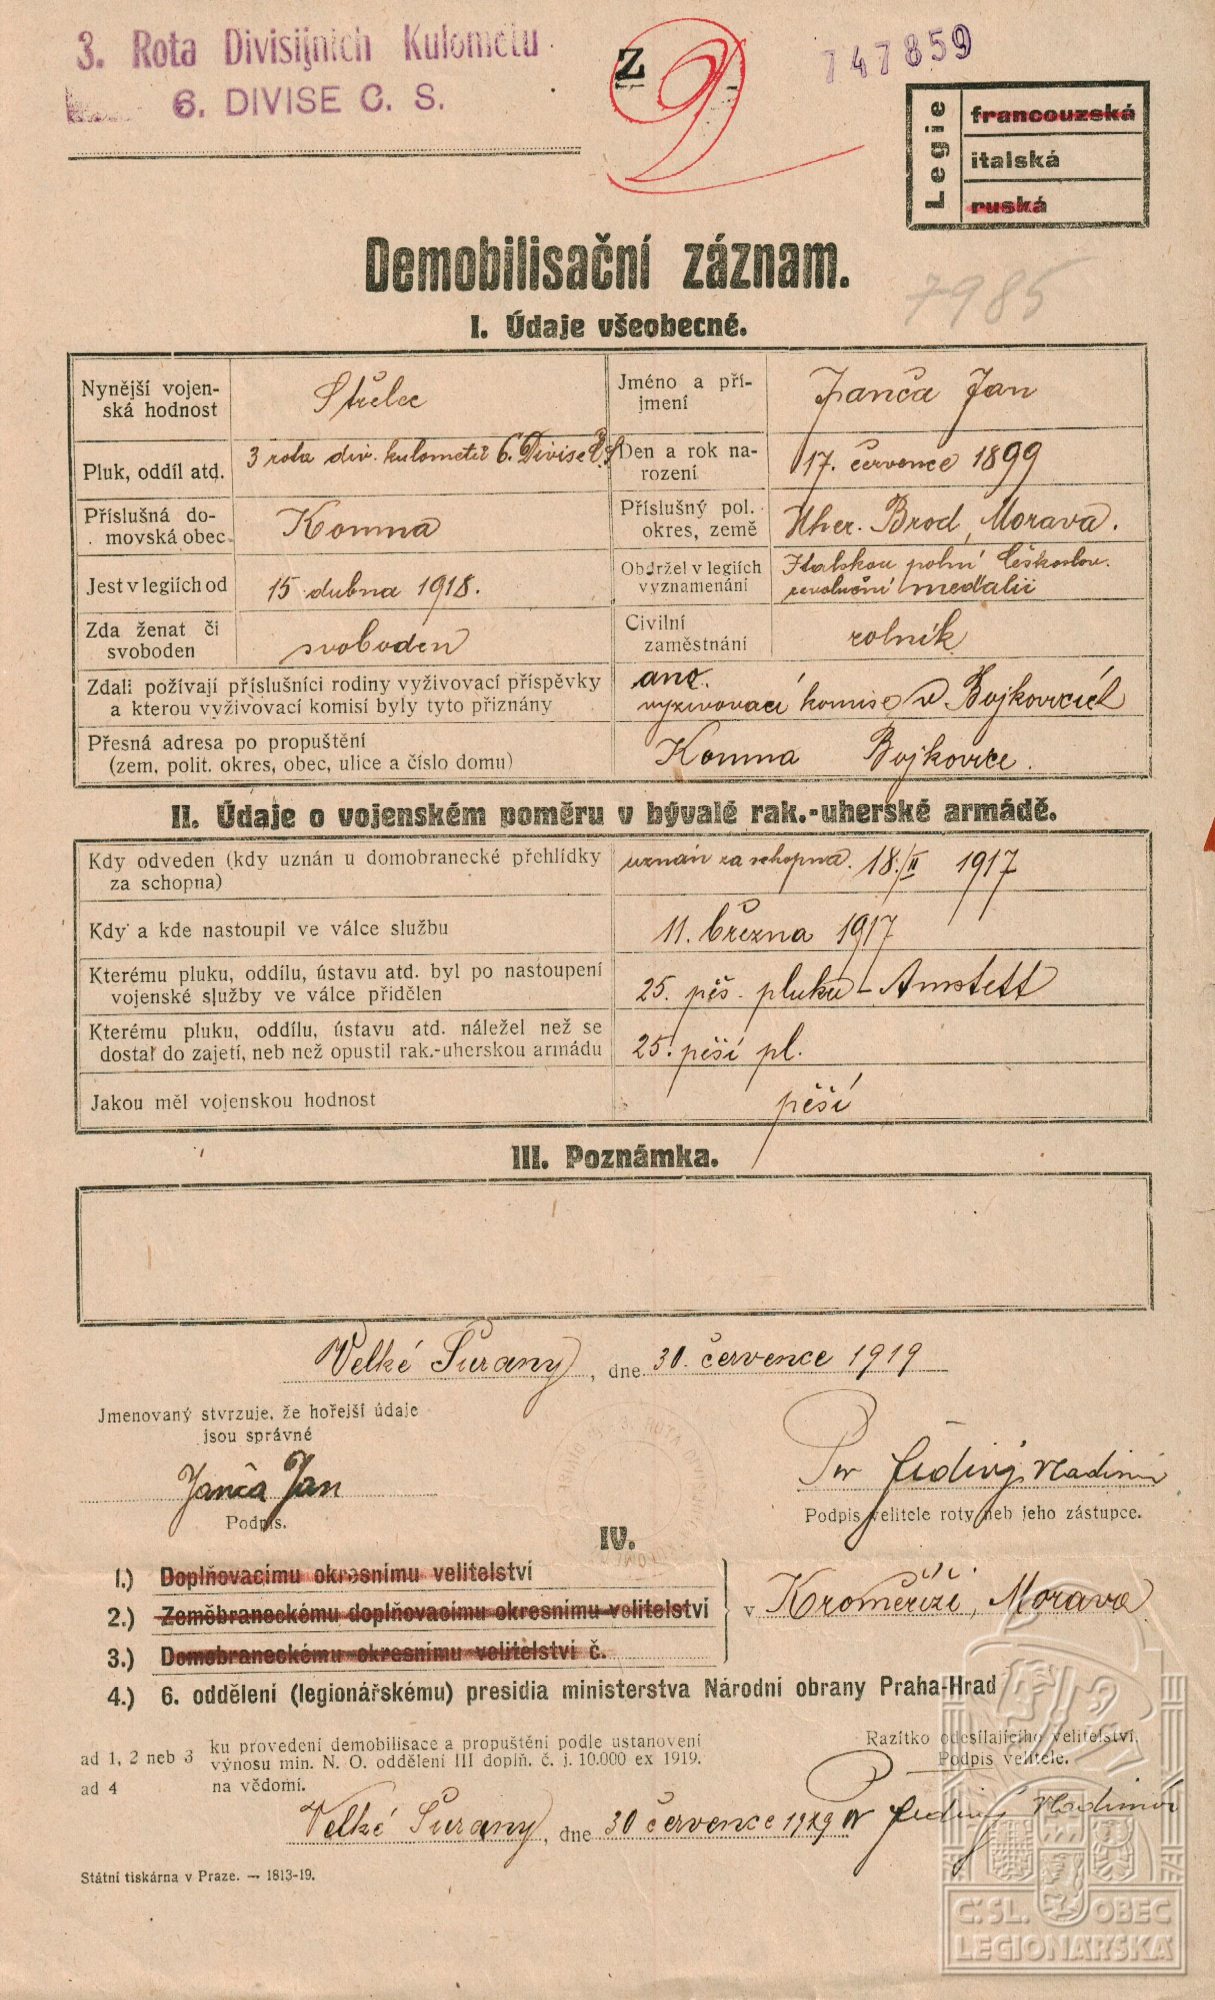 3. Rota Divisijních Kulometu
6. DIVISE C. S.
Z
9
747859
Legie
francouzská
italská
ruská
Demobilisační záznam.
7985
I. Údaje všeobecné.
Nynější vojen-
ská hodnost
Střelec
Jméno a pří-
jmení
Janča Jan
Pluk, oddíl atd.
3 rota div. kulometů 6. Divise Č.S.
Den a rok na-
rození
17. července 1899
Příslušná do-
movská obec
Komna
Příslušný pol.
okres, země
Uher. Brod, Morava.
Jest v legiích od
15 dubna 1918.
Obdržel v legiích
vyznamenání
Italskou polní Českoslov.
revoluční medalii
Zda ženat či
svoboden
svoboden
Civilní
zaměstnání
rolník
Zdali požívají příslušníci rodiny vyživovací příspěvky
a kterou vyživovací komisí byly tyto přiznány
ano.
vyživovací komise v Bojkovicích
Přesná adresa po propuštění
(zem, polit. okres, obec, ulice a číslo domu)
Komna Bojkovice.
II. Údaje o vojenském poměru v bývalé rak.-uherské armádě.
Kdy odveden (kdy uznán u domobranecké přehlídky
za schopna)
uznán za schopna. 18./II 1917
Kdy a kde nastoupil ve válce službu
11. března 1917
Kterému pluku, oddílu, ústavu atd. byl po nastoupení
vojenské služby ve válce přidělen
25. pěš. pluku - Amstett
Kterému pluku, oddílu, ústavu atd. náležel než se
dostal do zajetí, neb než opustil rak.-uherskou armádu
25. pěší pl.
Jakou měl vojenskou hodnost
pěší
III. Poznámka.
Velké Šurany, dne 30. července 1919
Jmenovaný stvrzuje, že hořejší údaje
jsou správné
Janča Jan
Podpis.
Šedivý Vladimír
Podpis velitele roty neb jeho zástupce.
IV.
1.) Doplňovacímu okresnímu velitelství
2.) Zeměbraneckému doplňovacímu okresnímu velitelství
3.) Domobraneckému okresnímu velitelství č.
v Kroměříži, Morava
4.) 6. oddělení (legionářskému) presidia ministerstva Národní obrany Praha-Hrad
ad 1, 2 neb 3
ku provedení demobilisace a propuštění podle ustanovení
výnosu min. N. O. oddělení III doplň. č. j. 10.000 ex 1919.
ad 4
na vědomí.
Razítko odesílajícího velitelství.
Podpis velitele.
Velké Šurany, dne 30 července 1919
Šedivý Vladimír
Státní tiskárna v Praze. — 1813-19.
Č. SL. OBEC
LEGIONÁŘSKÁ